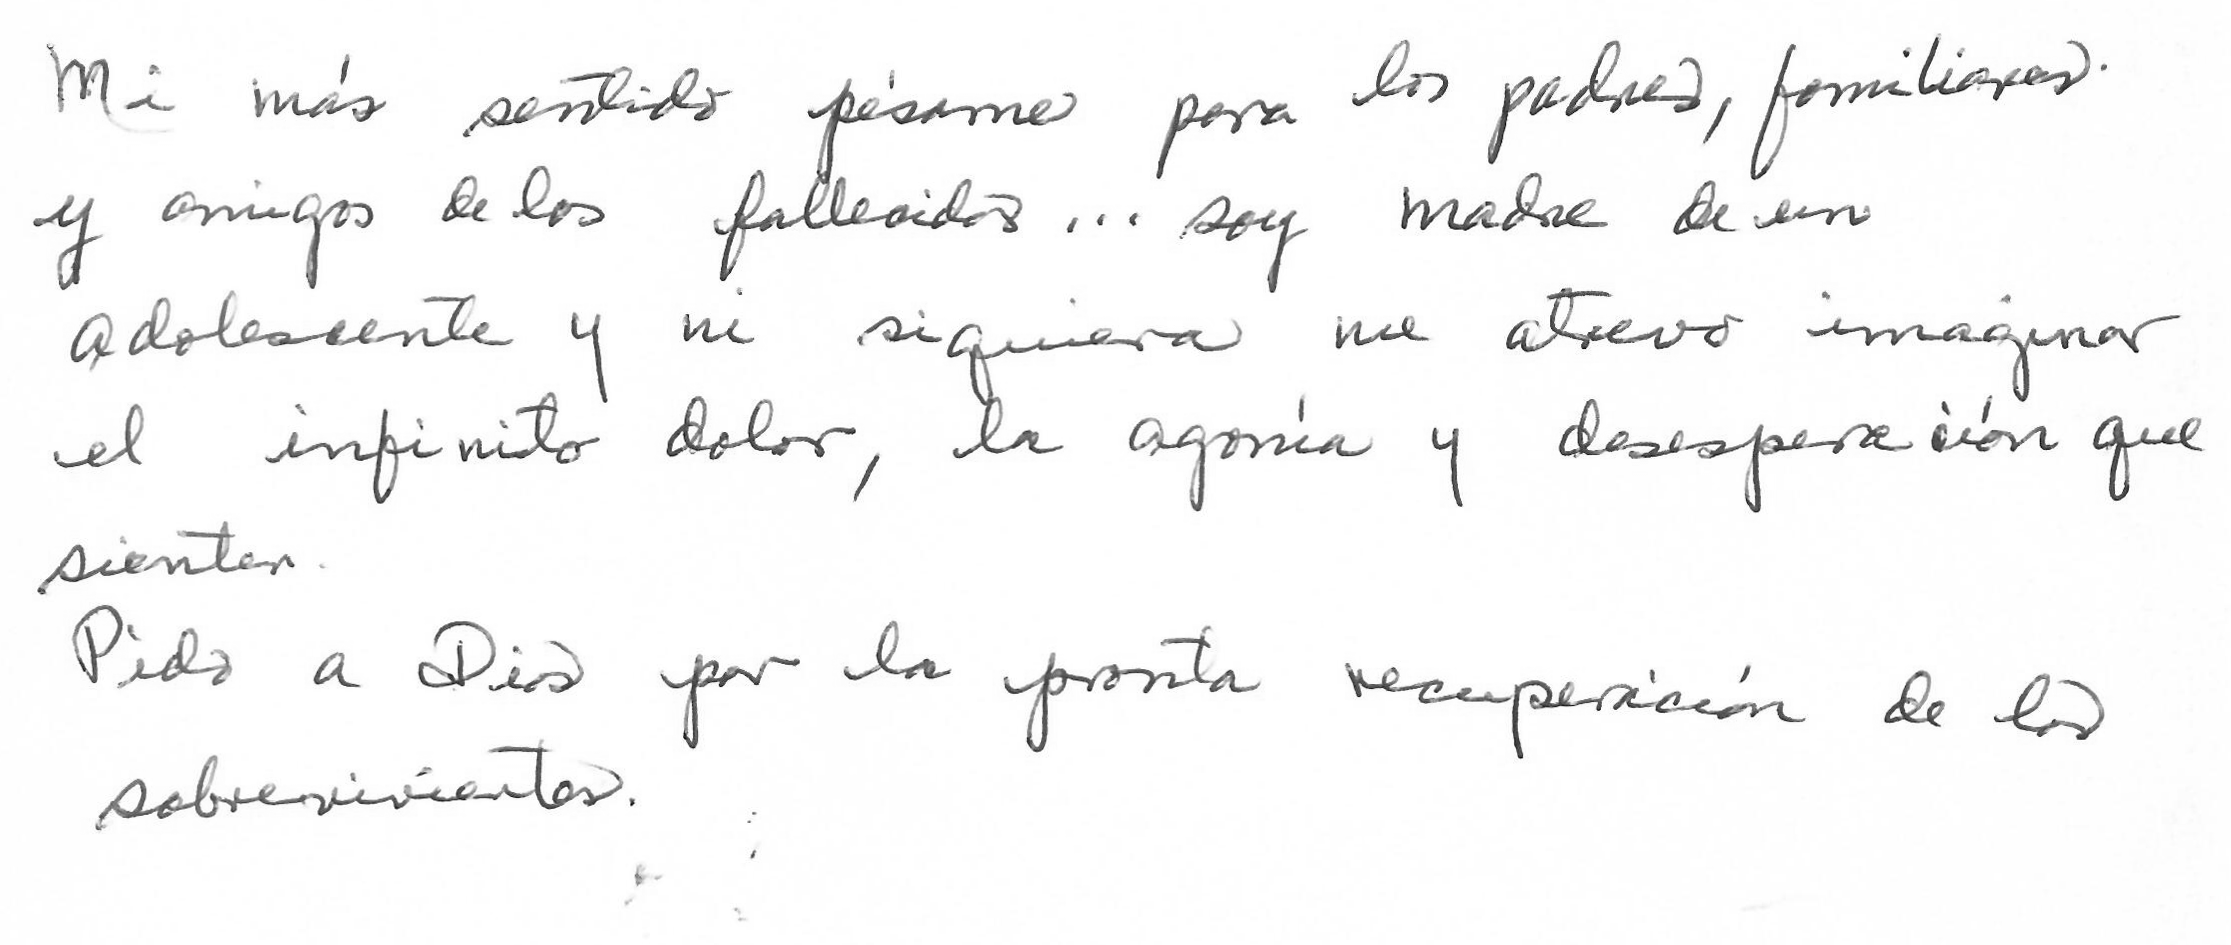 Mi más sentido pésame para los padres, familiares
y amigos de los fallecidos... soy madre de un
adolescente y ni siquiera me atrevo imaginar
el infinito dolor, la agonía y desesperación que
sienten.
Pido a Dios por la pronta recuperación de los
sobrevivientes.